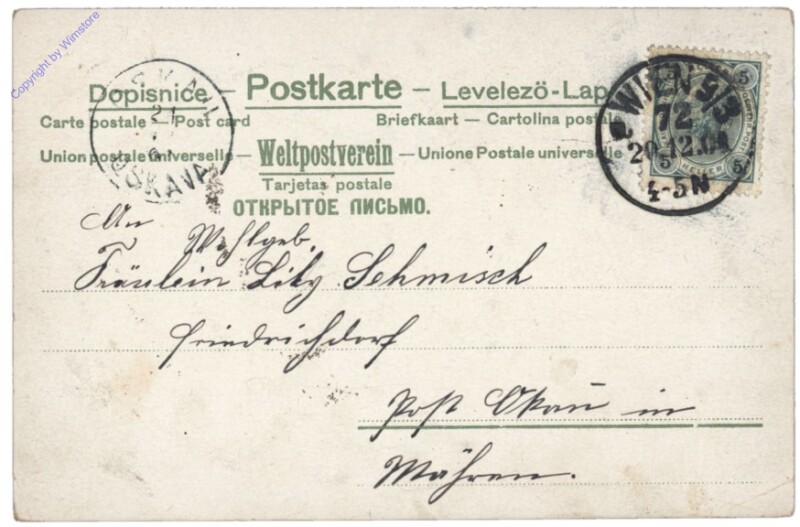 Copyright by Wimstore
Dopisnice – Postkarte – Levelező-Lap
Carte postale – Post card Briefkaart – Cartolina postale
Union postale universelle – Weltpostverein – Unione Postale universelle
Tarjetas postale
ОТКРЫТОЕ ПИСЬМО.
WIEN 5/3
72
29.12.04
4-5N
5 5
5 HELLER 5
SKAVA
An
Wohlgeb.
Fräulein Lily Schmisch
Friedrichdorf
Post Okau in
Mähren.